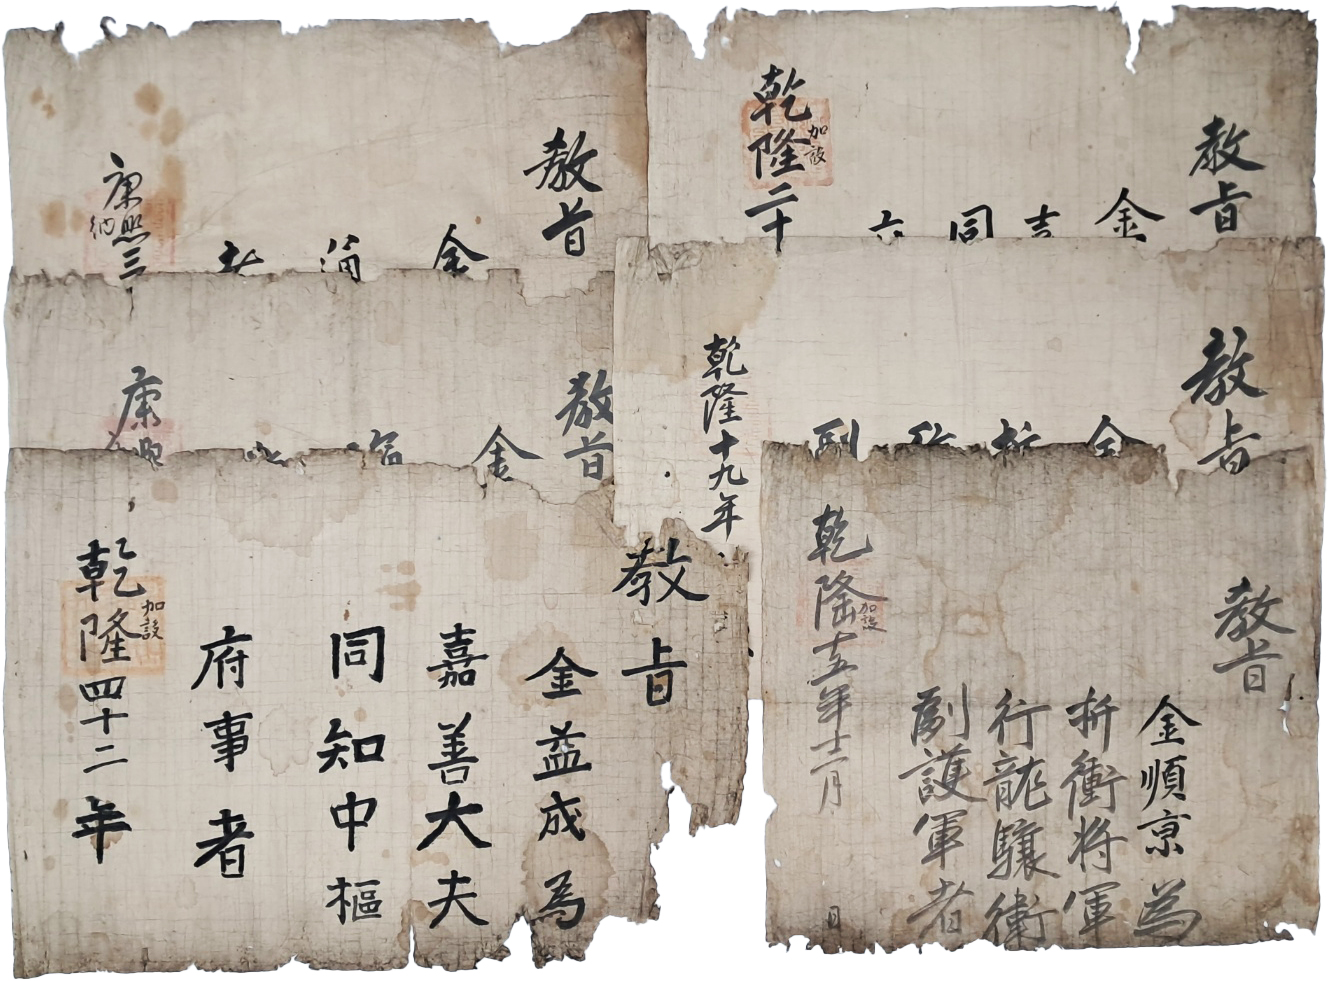 教旨
金
康熙三
納
教旨
金
吉
同
六
乾隆二十
加設
教旨
金
康熙
教旨
金
折
副
乾隆十九年
教旨
金益成為
嘉善大夫
同知中樞
府事者
乾隆四十二年
加設
教旨
金順京為
折衝將軍
行龍驤衛
副護軍者
乾隆十五年十二月
日
加設